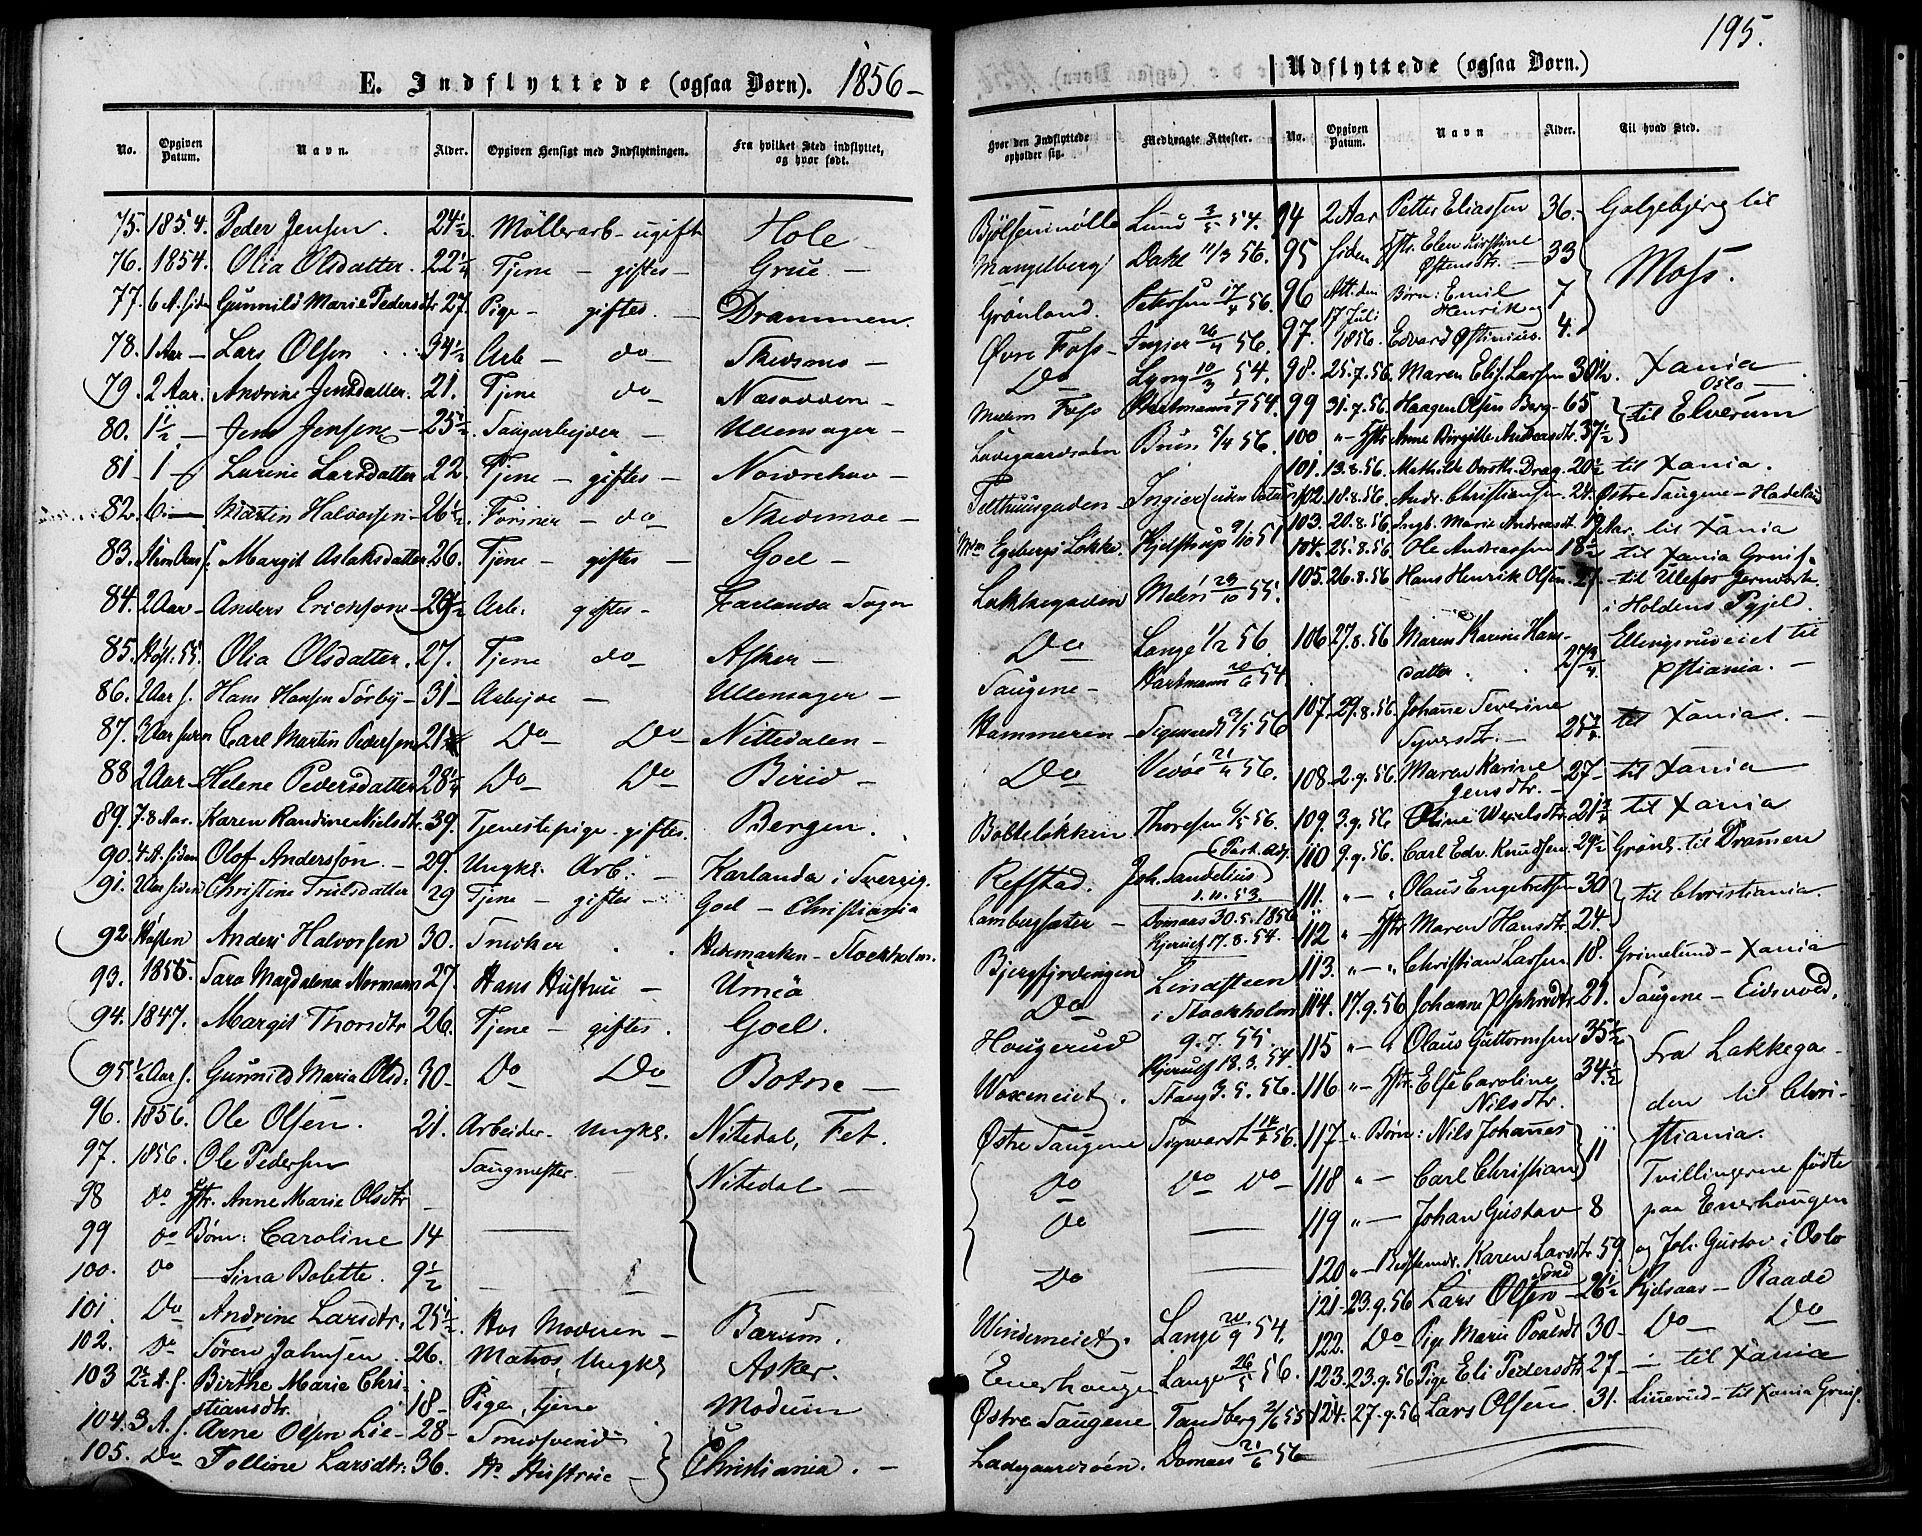 195.
E. Indflyttede (ogsaa Børn). 1856-
No. Opgiven Datum. Navn. Alder. Opgiven Hensigt med Indflytningen. Fra hvilket Sted indflyttet, og hvor født.
75. 1854. Peder Jensen. 24½. Møllerarb- ugift Hole
76. 1854. Olia Olsdatter. 22¼ Tjene - giftes - Grue. -
77. 6 A. siden Gunnild Marie Pedersdtr 27. Pige - giftes. - Drammen.
78. 1 Aar - Lars Olsen 34½ Arb - do - Skedsmo -
79. 2 Aar. Andrine Jensdatter. 21. Tjene do Næsodden -
80. 1½ - Jens Jensen - 25½ Saugarbejder - Ullensager -
81 1 Larine Larsdatter 22. Tjene - giftes -
82. 6 - Martin Halvorsen - 26½ Former - do - Skedsmoe -
83. Margit Aslaksdatter 26. Tjene - giftes - Goel -
84. 2 Aar - Anders Ericksøn - Arb. giftes - Karlanda Sogn
85. Høst. 55. Olia Olsdatter. 27. Tjene do Asker -
86. 2 Aar s. Hans Hansen Sørby - 31 - Arbejde - Ullensager -
87. 3 Aar siden Carl Martin Pedersen 21 Do Do Nittedalen -
88 2 Aar - Helene Pedersdatter 28¼ Do Do Birid -
89. 7-8 Aar. Karen Randine Nielsdtr. 39. Tjenestepige. giftes. Bergen.
90. 4 A. siden Olof Andersson. - 29. Ungk. Arb. - Karlanda i Sverrig.
91. 2 Aar siden Christine Trulsdatter 29 Tjene - giftes - Goel - Christiania
92. Høsten Anders Halvorsen 30. Snedker Hedemarken - Stockholm.
93. 1855 Sara Magdalena Normann 27. Hans Hustrue - Umeå
94. 1847. Margit Thorsdtr 26. Tjene - giftes. Goel.
95. ½ Aar s. Gunnild Maria Olsd. 30 - Do Do Botne -
96. 1856. Ole Olsen. 21. Arbeider - Ungk. Nitedal, Fet.
97. 1856. Ole Pedersen Saugmester. - Nitedal -
98 do Hstr. Anne Marie Olsdtr -
99 do Børn: Caroline 14
100. do - Lina Bolette. 9½
101 Do Andrine Larsdtr. 25½. Hos Moderen - Bærum.
102. Do Søren Johnsen 26. Matros, Ungk. Asker.
103 2½ A. s. Birthe Marie Christiansdtr. 18 - Pige, Tjene Modum
104. 3 A. s. Arne Olsen Lie - 28 - Smedsvend
105. Do Folline Larsdtr. 36. Hs Hustrue - Christiania. -
Udflyttede (ogsaa Børn.)
Hvor den Indflyttede opholder sig. Medbragte Attester. No. Opgiven Datum. Navn Alder. Til hvad Sted.
Bjølsenmølle Lund 3/5 54.
Mangelberg Dahl 11/3 56.
Grønland. Petersen 17/4 56.
Øvre Foss - Ingier 26/4 56.
Do Lyng 10/3 54.
Melem Foss Hartmann 54.
Ladegaardsøen Bruun 5/4 56.
Telthuusgaden - Ingier
Egebergs Løkke. Kjelstrup 9/10 51
Lakkegaden 23/10 55.
Do Lange 1/2 56
Saugene - Hartmann 20/6 54
Hammeren - Sigwardt 56
Do Vedøe 56.
Bolteløkken Thoresen 6/5 56.
Refstad. Joh. Sandelius 1. 11. 53
Lambergsæter - Domaas 30. 5. 1856
Kjerulf 17. 8. 54.
Bjergfjerdingen Lindsteen
Do i Stockholm
Hougerud 9. 7. 55.
Kjerulf 18. 3. 54
Woxeneiet. Stang 3. 5. 56.
Østre Saugene Sigwardt 56.
Do Do Do
Do
Do
Windereneiet. Lange 20/9 54.
Enerhougen Lange 26/5 56.
Østre Saugene Tandberg 2/6 55
Ladegaardsøen. Domaas 21/6 56
94 2 Aar Petter Eliassen 36. Galgebjerg til
95 siden Hstr. Elen Kirstine Østensdtr. - 33 Moss.
96 Att. den Børn: Emil Henrik og 7
97. 17 Juli 1856. Edvard Østinius. 4.
98. 25. 7. 56. Maren Elis. Larsen 30½. Xania
Oslo -
99 31. 7. 56. Haagen Olsen Berg - 65 til Elverum
100 " - Hstr. Anne Birgitte Andreasdtr. 37½
101. 13. 8. 56. Mathilde Doroth. Drag. 20½ til Xania.
102. 18. 8. 56. Andr. Christiansen 24. Østre Saugene - Hadeland
103. 20. 8. 56. Ingb. Marie Andreasdt. 19 Aar. til Xania
104. 25. 8. 56. Ole Andreassen 18½ til Xania
105. 26. 8. 56. Hans Henrik Olsen. 27. - til Ulefos Jernværk
i Holdens Pgjeld.
106 27. 8. 56 Maren Karine Hansdatter. 27¾. Ellingsrudeiet til Xstiania. -
107. 29. 8. 56. Johane Severine Syversdtr. - 25¾ til Xania. -
108. 2. 9. 56. Maren Karine Jensdtr. - 27 - til Xania
109. 3. 9. 56 Oline Wexelsdtr. 21¾ til Xania
110 9. 9. 56. Carl Edv. Knudsen. 29½ Grønl. til Dramen
111. " - " Olaus Engebretsen 30 til Christiania.
112 " - Hstr Maren Hansdtr. 24.
113. " - " Christian Larsen 18. Grimelund - Xania
114. 17. 9. 56 Johanne 21. Saugene - Eidsvold.
115 " - " Olaus Guttormsen 35½ Fra Lakkega-
116 " - Hstr. Else Caroline Nilsdtr. 34½ den til Chri-
117 " Børn: Nils Johannes 11 stiania.
118 " - Carl Christian Tvillingerne fødte
119 " - Johan Gustav 8 paa Enerhougen
120 " - Karen Larsdtr. 59 og Joh. Gustav i Oslo
121 - 23. 9. 56 Lars Olsen - 26½ Kjelsaas - Raade
122. Do Pige Marie Poulsdt 30 - Do Do
123. 23. 9. 56 Pige Eli Pedersdtr 27 - - til Xania
124. 27. 9. 56 Lars Olsen. 31. Linerud - til Xania